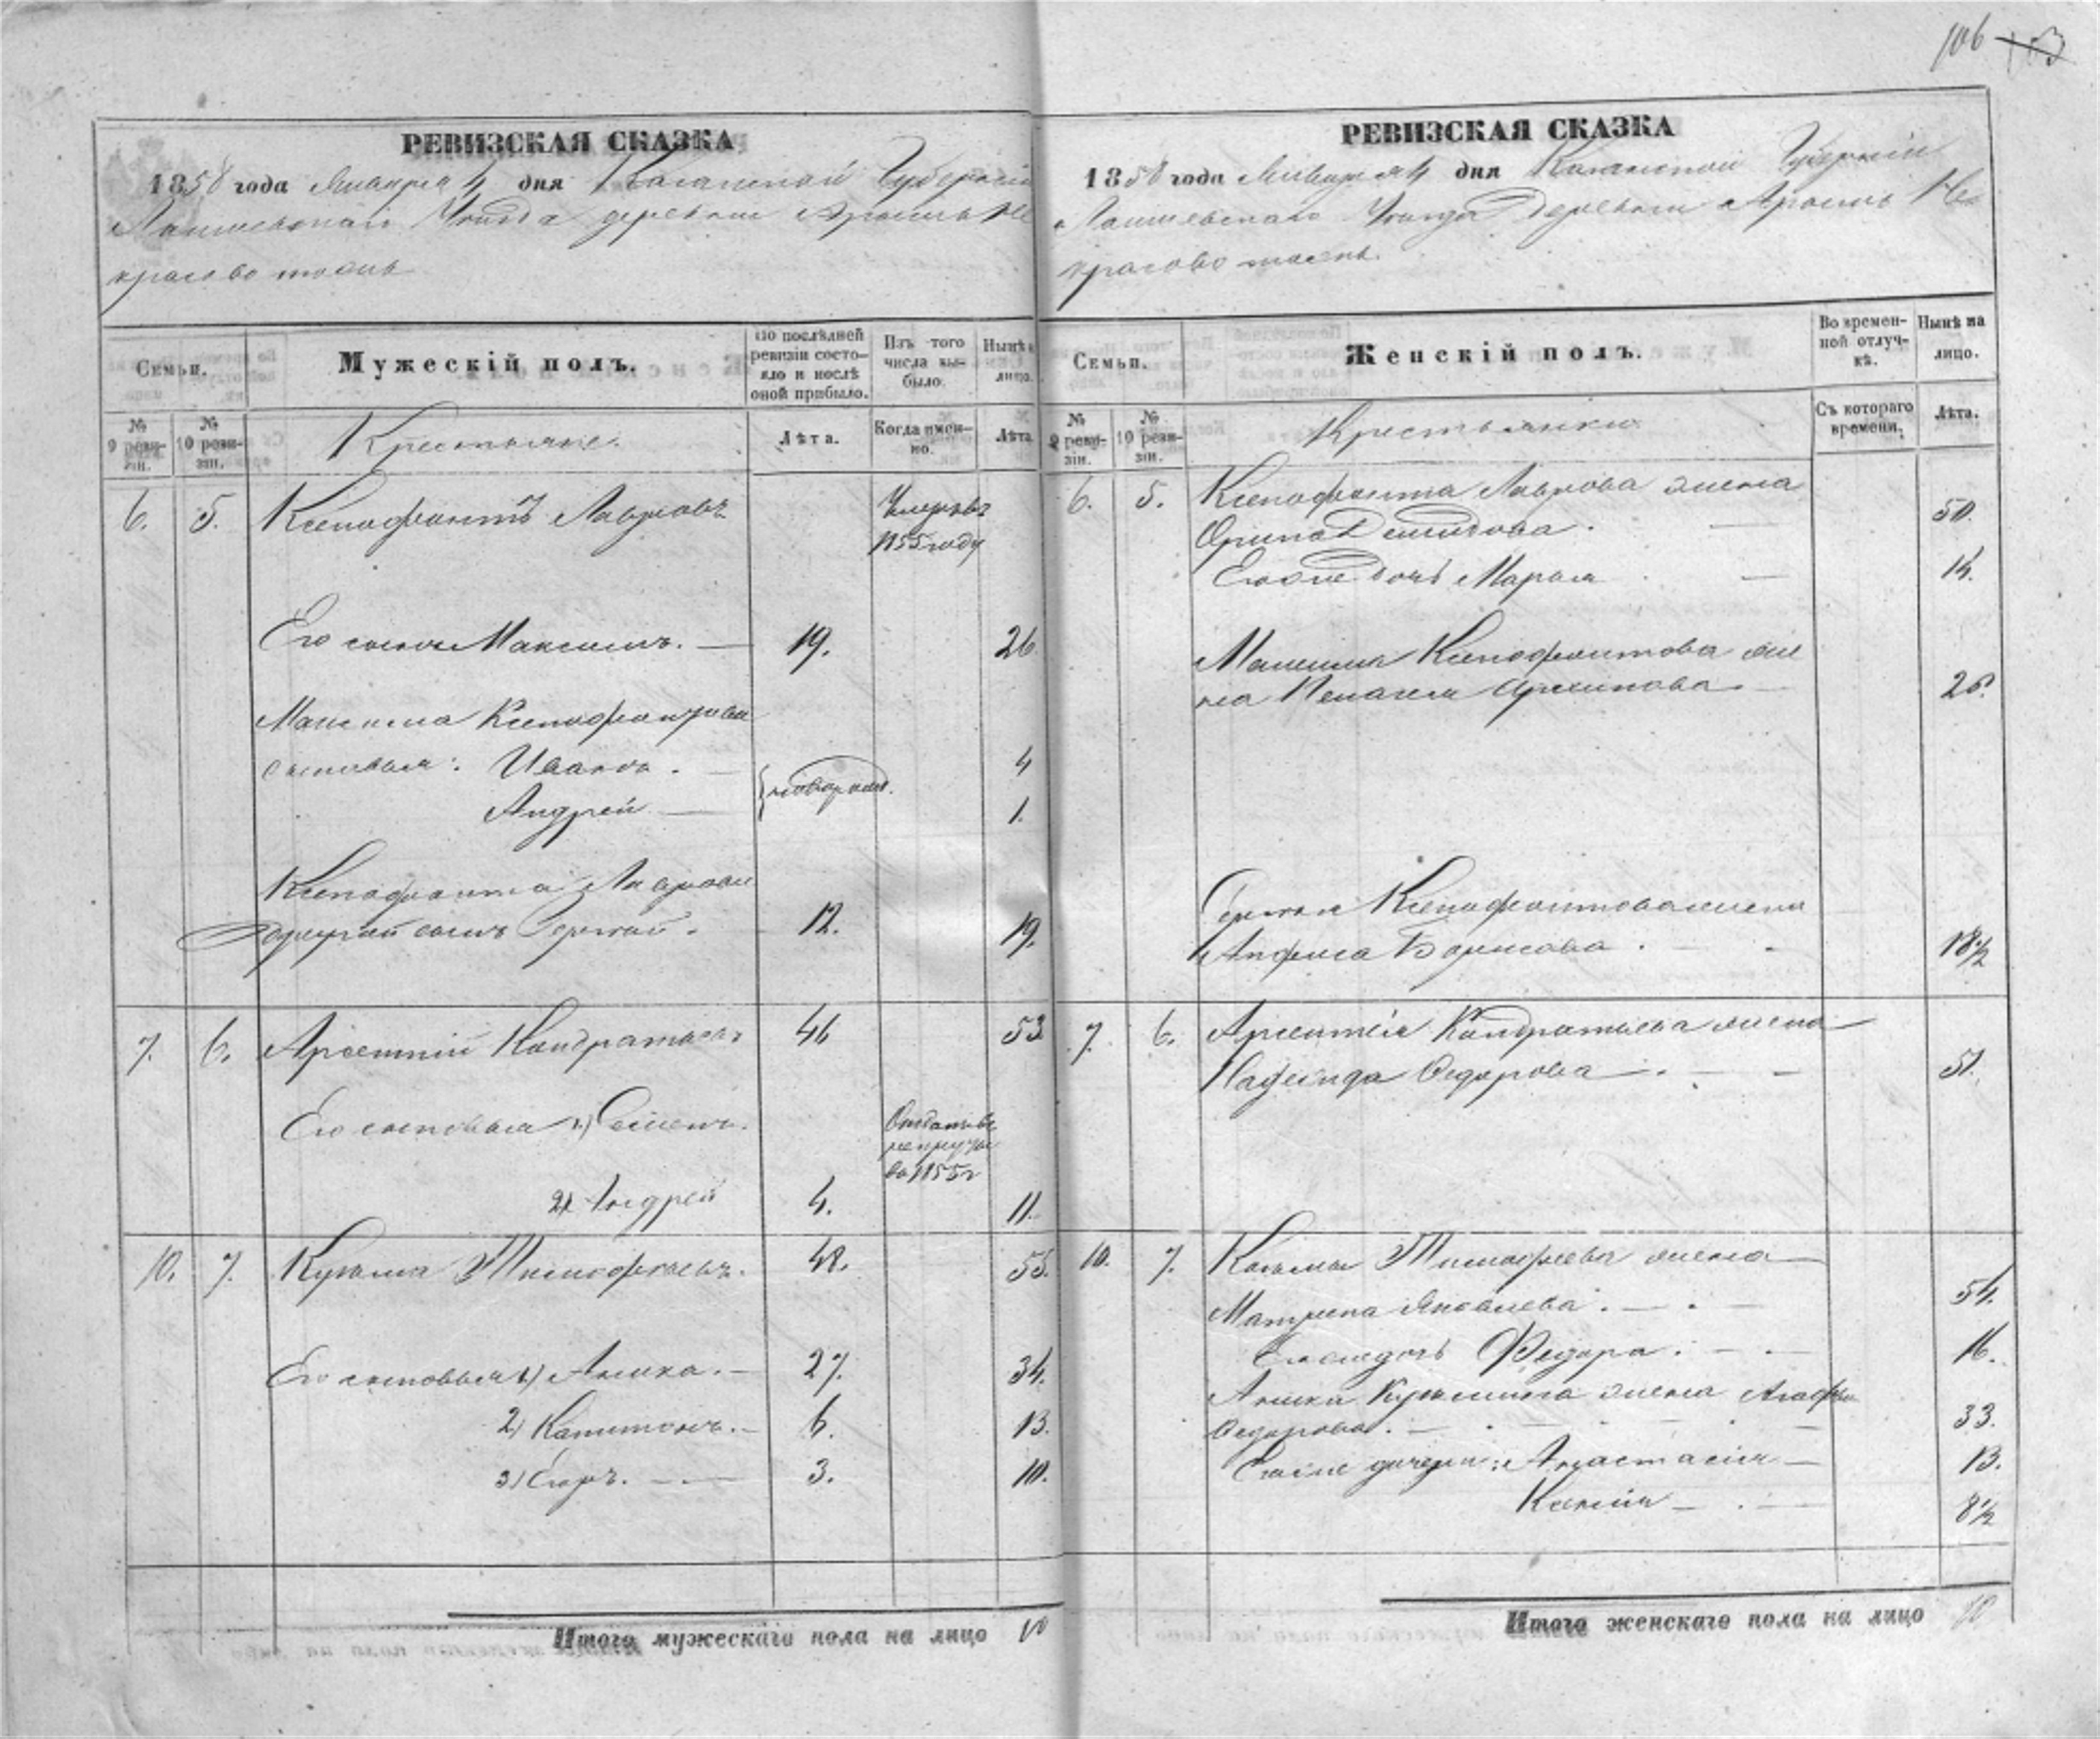 106 103
РЕВИЗСКАЯ СКАЗКА
1858 года Января 4 дня Казанской Губерніи
Лаишевскаго Уѣзда деревни
красово тожъ
Семьи.
Мужескій полъ.
По послѣдней ревизіи состояло и послѣ оной прибыло.
Изъ того числа выбыло.
Нынѣ на лицо.
№ 9 ревизіи.
№ 10 ревизіи.
Крестьяне.
Лѣта.
Когда именно.
Лѣта.
6. 5. Ксенофонтъ Лавровъ
Умеръ въ
1855 году
Его сынъ Максимъ. — 19. 26.
Максима Ксенофонтова
сыновья: Иванъ. — 4
Андрей — 1.
Ксенофонта Лаврова
другой сынъ Сергей. 12. 19.
7. 6. Арсентій Кондратьевъ 46 53
Его сыновья 1) Семенъ.
Отданъ въ
рекруты
въ 1855 г
2) Андрей 4. 11.
10. 7. Кузьма Тимофѣевъ. 48. 55.
Его сыновья 1) Аника. — 27. 34.
2) Капитонъ. — 6. 13.
3) Егоръ. — 3. 10.
Итого мужескаго пола на лицо 10
РЕВИЗСКАЯ СКАЗКА
1858 года Января 4 дня Казанской Губерніи
Лаишевскаго Уѣзда Деревни
красово тожъ.
Семьи.
Женскій полъ.
Во временной отлучкѣ.
Нынѣ на лицо.
№ 9 ревизіи.
№ 10 ревизіи.
Крестьянки
Съ котораго времени.
Лѣта.
6. 5. Ксенофонта Лаврова жена
Орина Демидова. — 50.
Егоже дочь Марья — 14.
Максима Ксенофонтова же
на Пелагея Архипова — 26.
Сергея Ксенофонтова жена
Анфиса Борисова. 18 1/2
7. 6. Арсентія Кондратьева жена —
Надежда Федорова — 51.
10. 7. Козьмы Тимофеева жена —
Матрена Яковлева. — 54.
Егоже дочь Федора. — 16.
Аники Кузьмина жена Агафья
Федорова. — 33.
Егоже дочери: Анастасія — 13.
Ксенія — 8 1/2
Итого женскаго пола на лицо 10